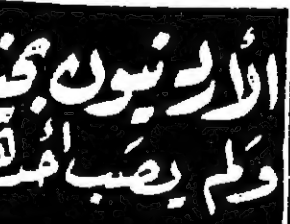 الأردنيون
ولم يصب أحد